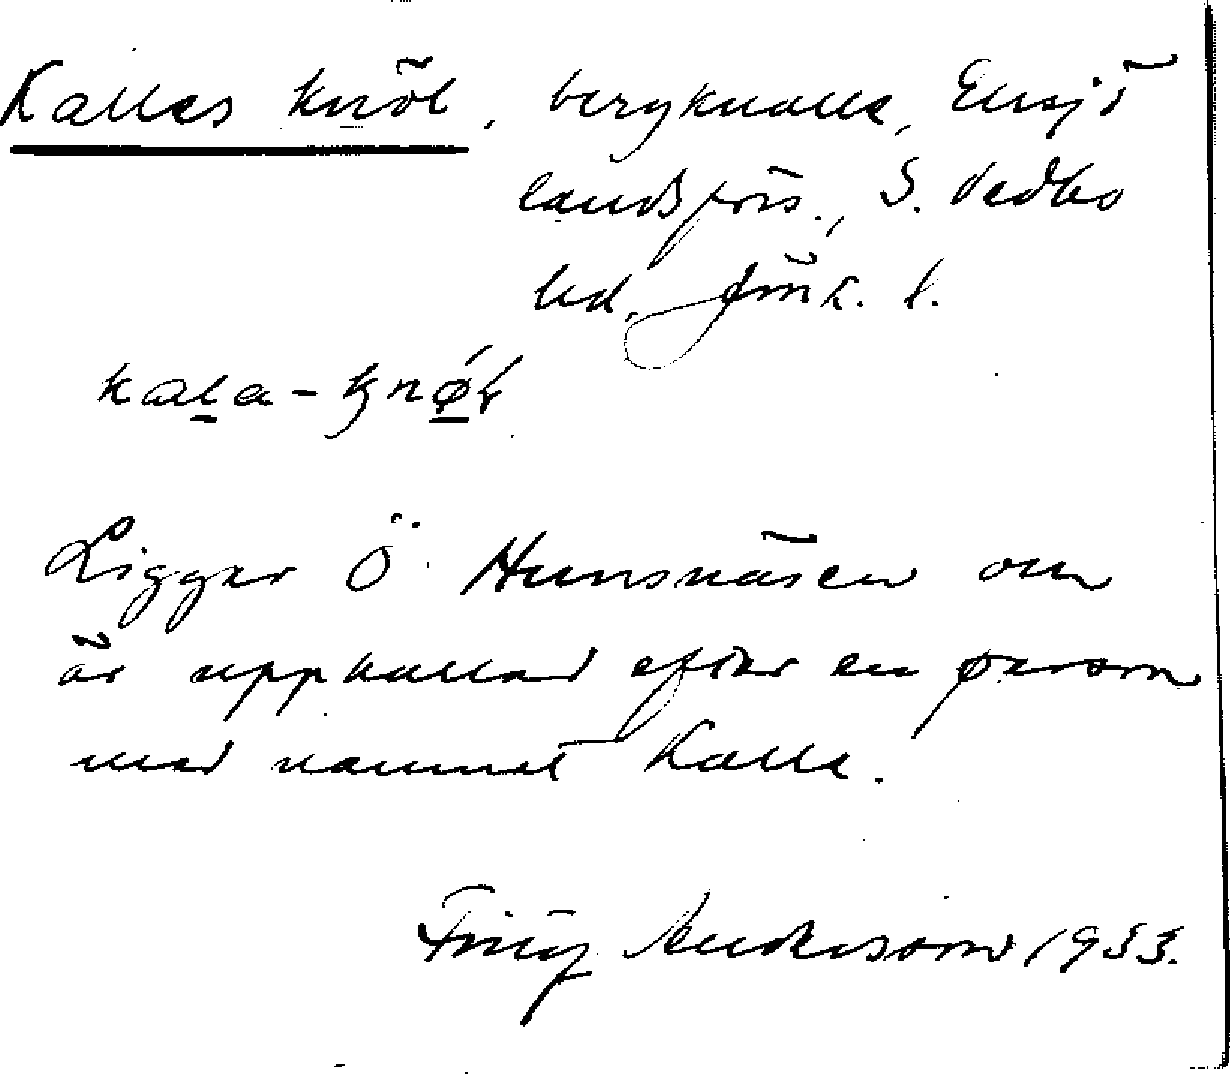 Kalles knöl, bergknalle, Eksjö
landsförs., S. Vedbo
hd, Jönk. l.
Ligger Ö Hunsnäsen om
är uppkallad efter en person
med namnet Kalle.
Fritz Andersson 1933.